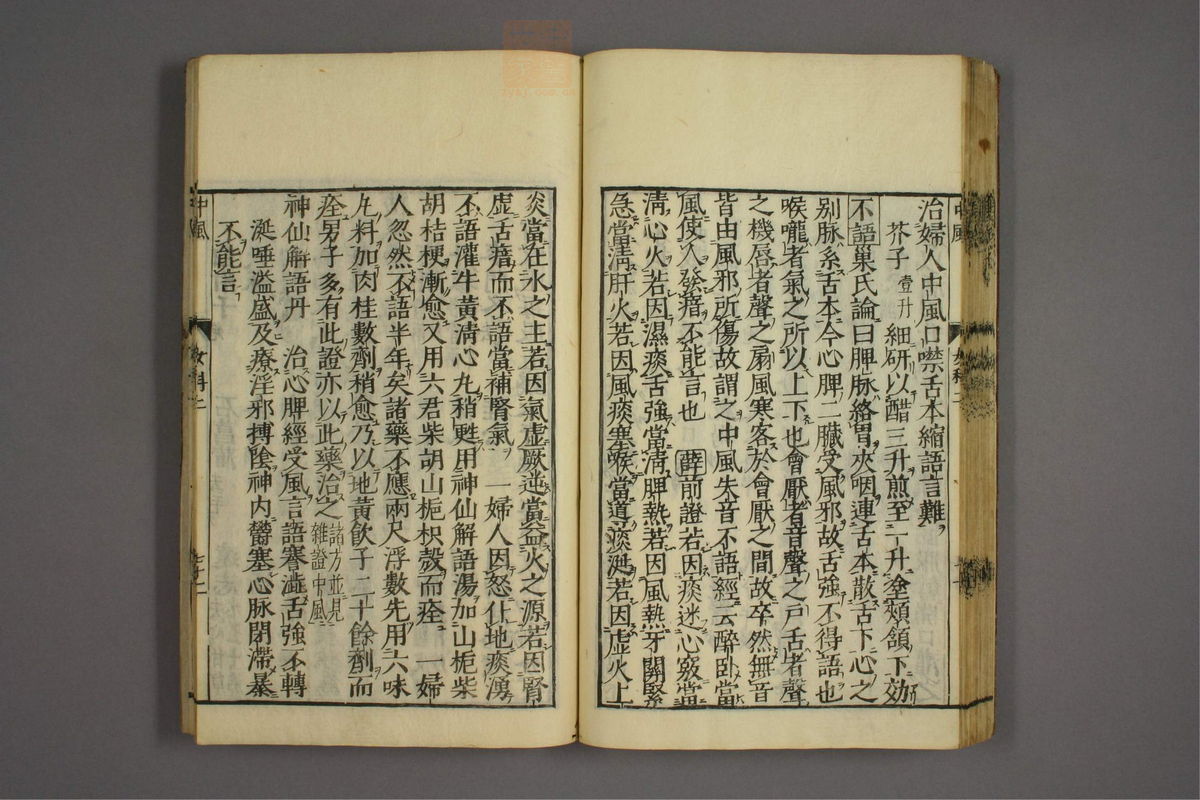 治婦人中風口噤舌本縮語言難
芥子壹升細研以醋三升煎至一升塗頰頷下効
不語巢氏論曰脾脉絡胃夾咽連舌本散舌下心之
別脉系舌本今心脾二臟受風邪故舌強不得語也
喉嚨者氣之所以上下也會厭者音聲之戸舌者聲
之機唇者聲之扇風寒客於會厭之間故卒然無音
皆由風邪所傷故謂之中風失音不語經云醉卧當
風使人發瘖不能言也 薛前證若因痰迷心竅當
清心火若因濕痰舌強當清脾熱若因風熱牙關緊
急當清肝火若因風痰塞喉當導痰涎若因虚火上
炎當在水之主若因氣虚厥逆當益火之源若因腎
虚舌瘖而不語當補腎氣 一婦人因怒仆地痰湧
不語灌牛黄清心丸稍甦用神仙解語湯加山梔柴
胡桔梗漸愈又用六君柴胡山梔枳殼而痊 一婦
人忽然不語半年矣諸藥不應兩尺浮數先用六味
丸料加肉桂數劑稍愈乃以地黄飲子二十餘劑而
痊男子多有此證亦以此藥治之諸方並見雜證中風
神仙解語丹 治心脾經受風言語謇澁舌強不轉
涎唾溢盛及療淫邪搏陰神内鬱塞心脉閉滯暴
不能言
中風
女科二